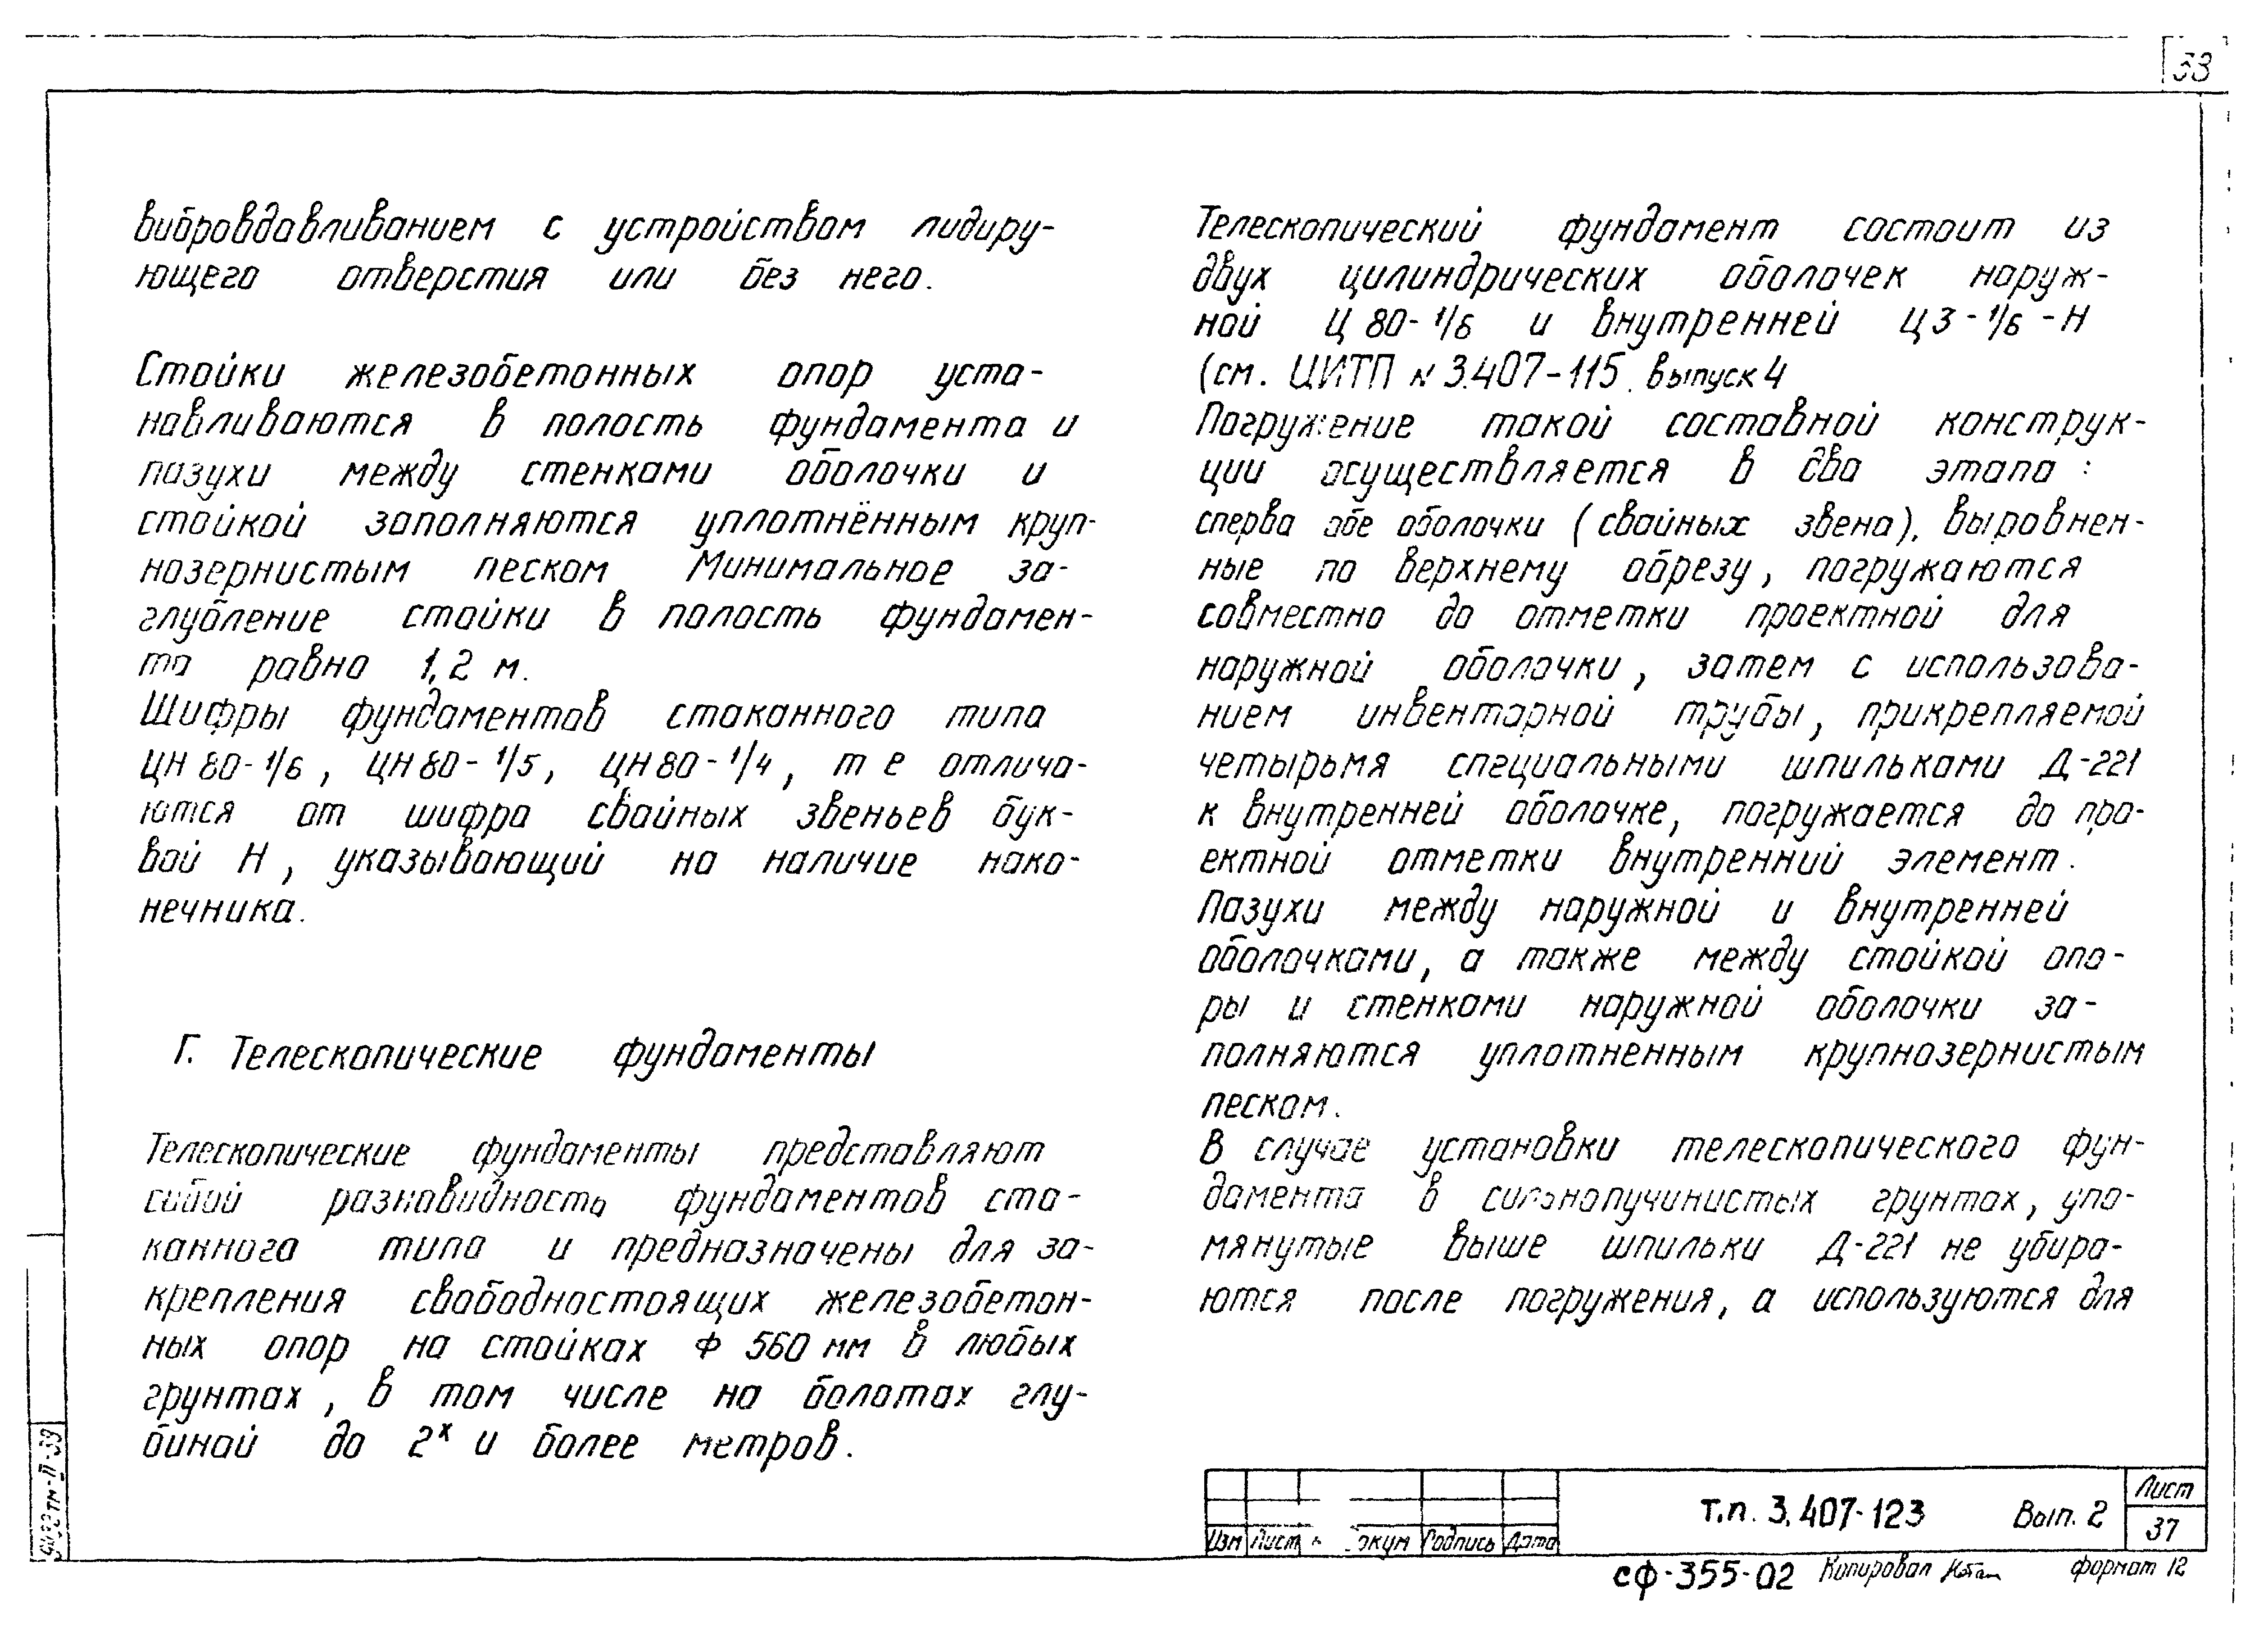 вибровдавливанием с устройством лидиру-
ющего отверстия или без него.
Стойки железобетонных опор уста-
навливаются в полость фундамента и
пазухи между стенками оболочки и
стойкой заполняются уплотнённым круп-
нозернистым песком Минимальное за-
глубление стойки в полость фундамен-
та равно 1,2 м.
Шифры фундаментов стаканного типа
ЦН 80-1/6, ЦН 80-1/5, ЦН 80-1/4, т е отлича-
ются от шифра свайных звеньев бук-
вой Н, указывающий на наличие нако-
нечника.
Г. Телескопические фундаменты
Телескопические фундаменты представляют
собой разновидность фундаментов ста-
канного типа и предназначены для за-
крепления свободностоящих железобетон-
ных опор на стойках Ф 560 мм в любых
грунтах, в том числе на болотах глу-
биной до 2х и более метров.
Телескопический фундамент состоит из
двух цилиндрических оболочек наруж-
ной Ц 80-1/6 и внутренней Ц3-1/6-Н
(см. ЦИТП N 3.407-115. выпуск 4
Погружение такой составной конструк-
ции осуществляется в два этапа:
сперва обе оболочки (свайных звена), выровнен-
ные по верхнему обрезу, погружаются
совместно до отметки проектной для
наружной оболочки, затем с использова-
нием инвентарной трубы, прикрепляемой
четырьмя специальными шпильками Д-221
к внутренней оболочке, погружается до про-
ектной отметки внутренний элемент.
Пазухи между наружной и внутренней
оболочками, а также между стойкой опо-
ры и стенками наружной оболочки за-
полняются уплотненным крупнозернистым
песком.
В случае установки телескопического фун-
дамента в сильнопучинистых грунтах, упо-
мянутые выше шпильки Д-221 не убира-
ются после погружения, а используются для
Изм Лист окум Подпись Дата
Т.п. 3.407-123 Вып. 2
Лист
37
сф-355-02 Копировал формат 12